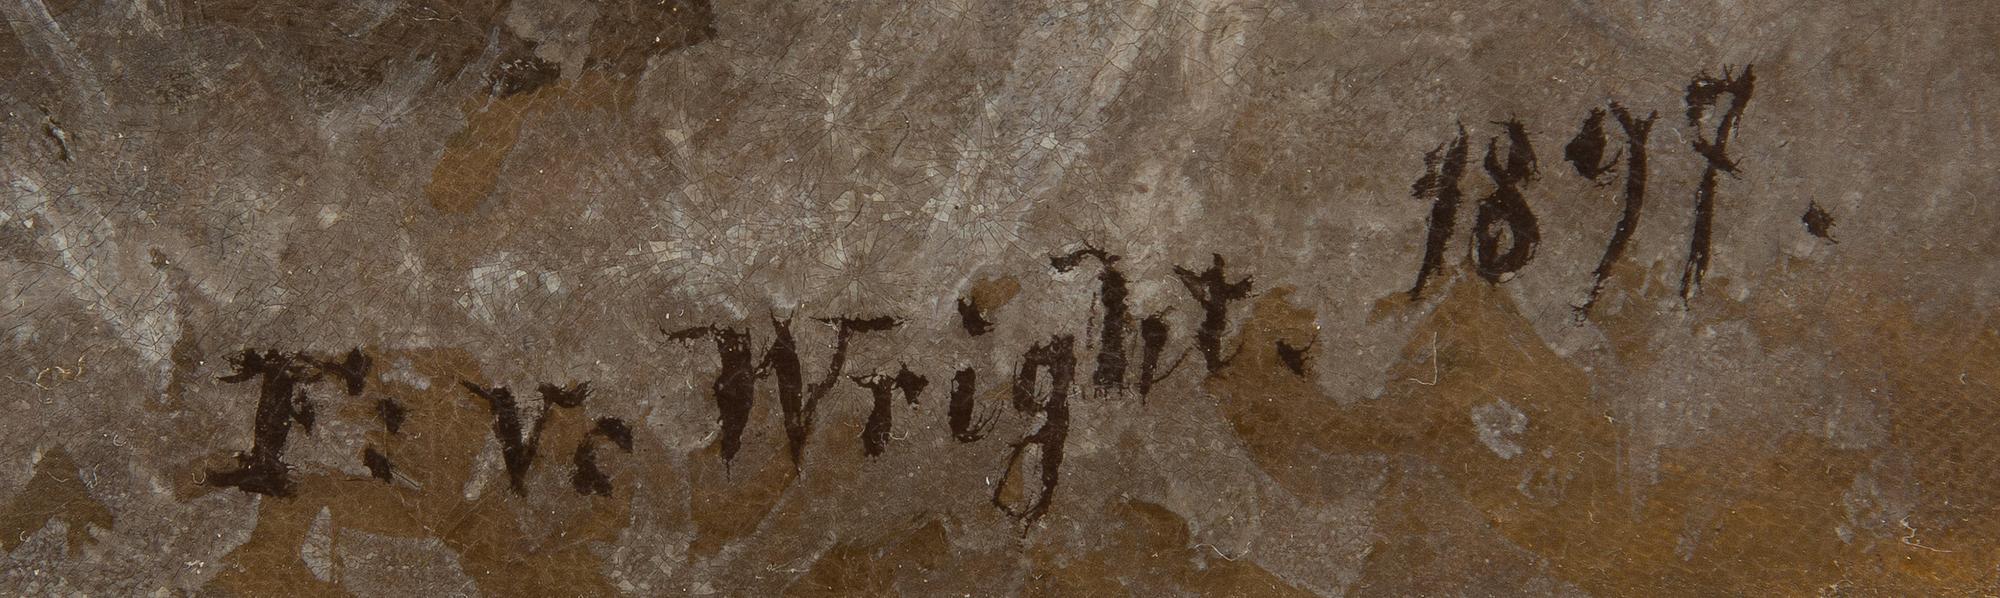 F: v: Wright. 1897.